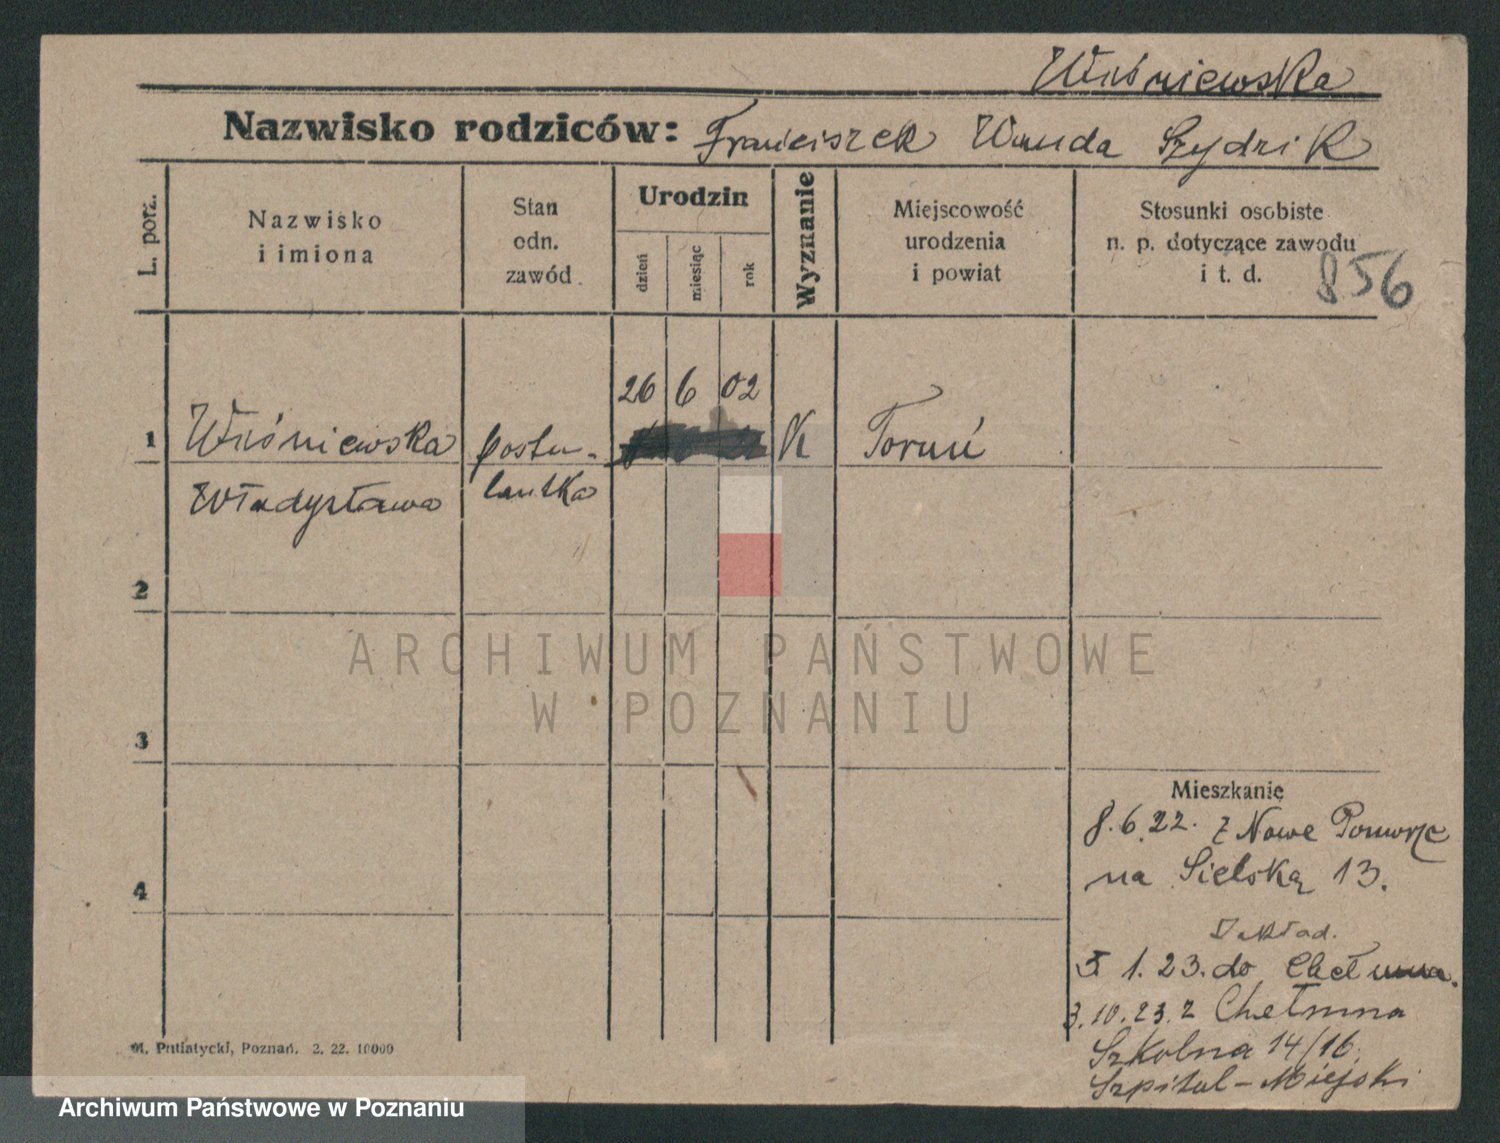 Wiśniewska
Nazwisko rodziców: Franciszek Wanda Szydzik
L. porz.
Nazwisko
i imiona
Stan
odn.
zawód
Urodzin
dzień
miesiąc
rok
Wyznanie
Miejscowość
urodzenia
i powiat
Stosunki osobiste
n. p. dotyczące zawodu
i t. d.
856
26 6 02
1 Wiśniewska postu- K Toruń
Władysława lantka
2
ARCHIWUM PAŃSTWOWE
W POZNANIU
3
Mieszkanie
8.6.22. z Nowe Pomorze
na Sielską 13.
4
Zakład.
5 1.23. do Chełmna.
3.10.23. z Chełmna
Szkolna 14/16
Szpital-Miejski
M. Putiatycki, Poznań. 2. 22. 10000
Archiwum Państwowe w Poznaniu